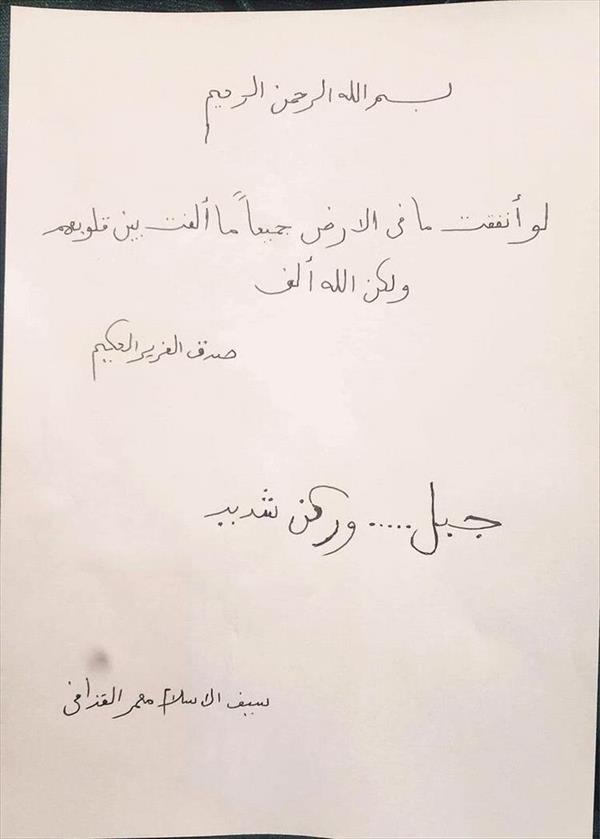 بسم الله الرحمن الرحيم
لو أنفقت ما في الارض جميعاً ما ألفت بين قلوبهم
ولكن الله ألف
صدق العزيز الحكيم
جبل ..... وركن شديد
سيف الاسلام معمر القذافي